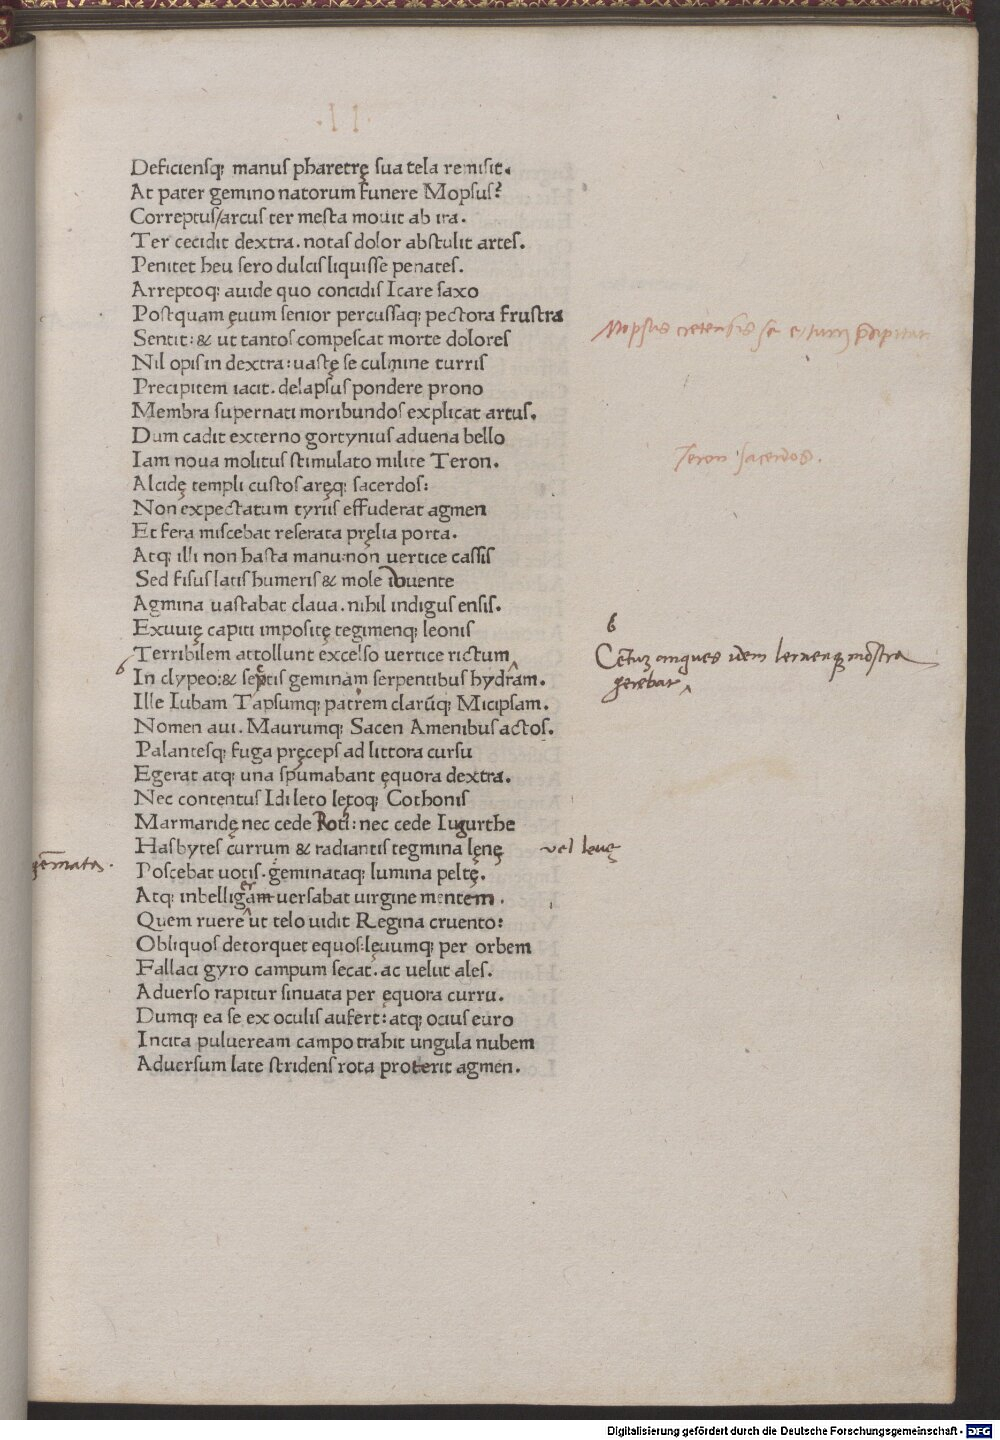 .II.
Deficiensq; manus pharetrę sua tela remisit.
At pater gemino natorum funere Mopsus?
Correptus/arcus ter mesta mouit ab ira.
Ter cecidit dextra. notas dolor abstulit artes.
Penitet heu sero dulcis liquisse penates.
Arreptoq; auide quo concidis Icare saxo
Postquam ęuum senior percussaq; pectora frustra
Sentit: & ut tantos compescat morte dolores
Mopsus cretensis se e turri
Nil opis in dextra: uastę se culmine turris
Precipitem iacit. delapsus pondere prono
Membra supernati moribundos explicat artus.
Dum cadit externo gortynius aduena bello
Iam noua molitus stimulato milite Teron.
Teron sacerdos.
Alcidę templi custos aręq; sacerdos:
Non expectatum tyriis effuderat agmen
Et fera miscebat reserata pręlia porta.
Atq; illi non hasta manu: non uertice cassis
Sed fisus latis humeris & mole iouente
Agmina uastabat claua. nihil indigus ensis.
Exuuię capiti impositę tegimenq; leonis
Terribilem attollunt excelso uertice rictum
6
Centum angues idem lerneaq; monstra
gerebat
6
In clypeo: & septis geminam serpentibus hydram.
Ille Iubam Tapsumq; patrem clarūq; Micipsam.
Nomen aui. Maurumq; Sacen Amenibus actos.
Palantesq; fuga pręceps ad littora cursu
Egerat atq; una spumabant ęquora dextra.
Nec contentus Idi leto lętoq; Cothonis
Marmaridę nec cede Roti: nec cede Iugurthe
Hasbytes currum & radiantis tegmina lęnę
vel leuę
gemmata.
Poscebat uotis. geminataq; lumina peltę.
Atq; in belligeram uersabat uirgine mentem.
Quem ruere ut telo uidit Regina cruento:
Obliquos detorquet equos: lęuumq; per orbem
Fallaci gyro campum secat. ac uelut ales.
Aduerso rapitur sinuata per ęquora curru.
Dumq; ea se ex oculis aufert: atq; ocius euro
Incita pulueream campo trahit ungula nubem
Aduersum late stridens rota proterit agmen.
Digitalisierung gefördert durch die Deutsche Forschungsgemeinschaft - DFG